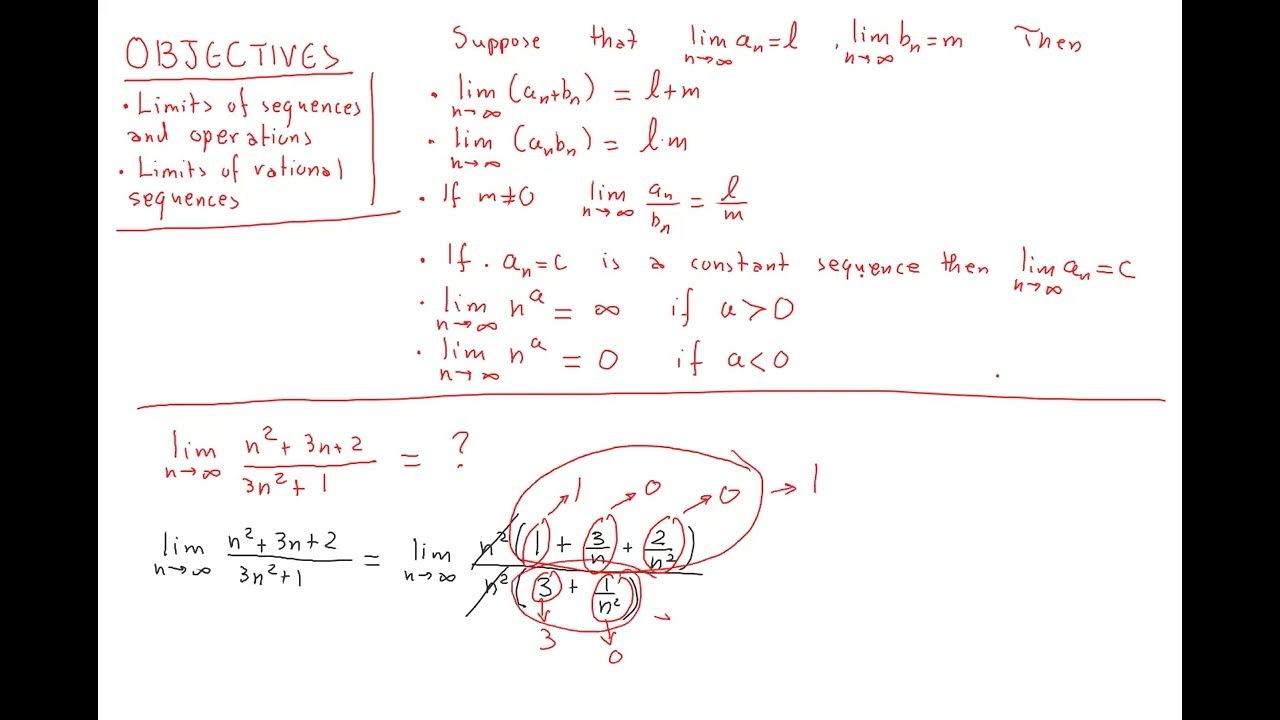 OBJECTIVES
• Limits of sequences
and operations
• Limits of rational
sequences
Suppose that lim aₙ = l , lim bₙ = m Then
n→∞ n→∞
• lim (aₙ+bₙ) = l+m
n→∞
• lim (aₙbₙ) = l·m
n→∞
• If m≠0 lim aₙ/bₙ = l/m
n→∞
• If . aₙ=c is a constant sequence then lim aₙ = c
n→∞
• lim nᵃ = ∞ if a>0
n→∞
• lim nᵃ = 0 if a<0
n→∞
lim (n²+3n+2)/(3n²+1) = ?
n→∞
→1 →0 →0 →1
lim (n²+3n+2)/(3n²+1) = lim n²(1 + 3/n + 2/n²)/n²(3 + 1/n²)
n→∞ n→∞
3 0